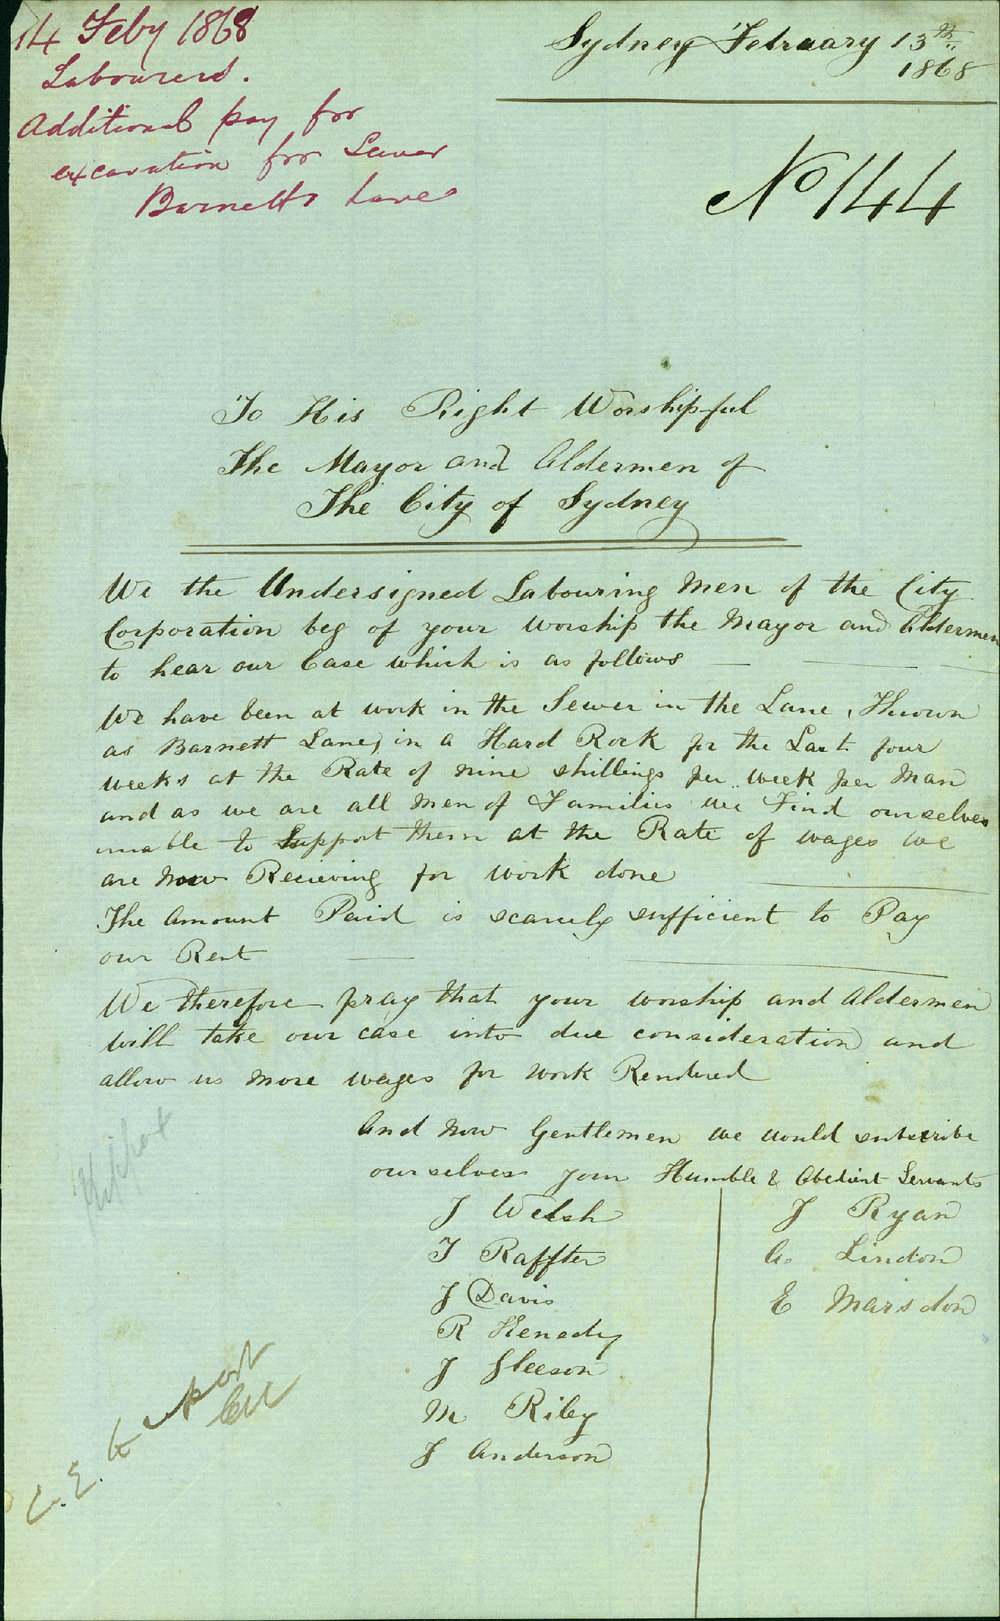 14 Feby 1868
Labourers.
Additional pay for
excavation for Sewer
Barnetts Lane
Sydney February 13th
1868
No 144
To His Right Worshipful
The Mayor and Aldermen of
The City of Sydney
We the Undersigned Labouring Men of the City
Corporation beg of your Worship the Mayor and Aldermen
to hear our Case which is as follows
We have been at work in the Sewer in the Lane, Known
as Barnett Lane, in a Hard Rock for the Last four
weeks at the Rate of nine shillings per week per Man
and as we are all Men of Families we Find ourselves
unable to Support them at the Rate of wages we
are now Recieving for work done
The Amount Paid is scarcely sufficient to Pay
our Rent
We therefore pray that your worship and Aldermen
will take our case into due consideration and
allow us more wages for work Rendered
And now Gentlemen we would subscribe
ourselves your Humble & Obedient Servants
J Welsh
T Raffter
J Davis
R Kenedy
J Gleeson
M Riley
J Anderson
J Ryan
G. Lindon
E Marsdon
C.E. to report